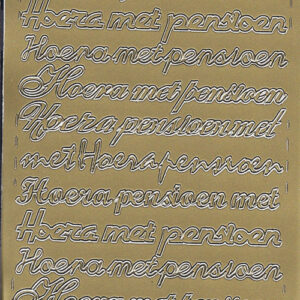 Hoera met pensioen
Hoera met pensioen
Hoera met pensioen
Hoera pensioen met
met Hoera pensioen
Hoera pensioen met
Hoera met pensioen
Hoera met pensioen
Hoera met pensioen